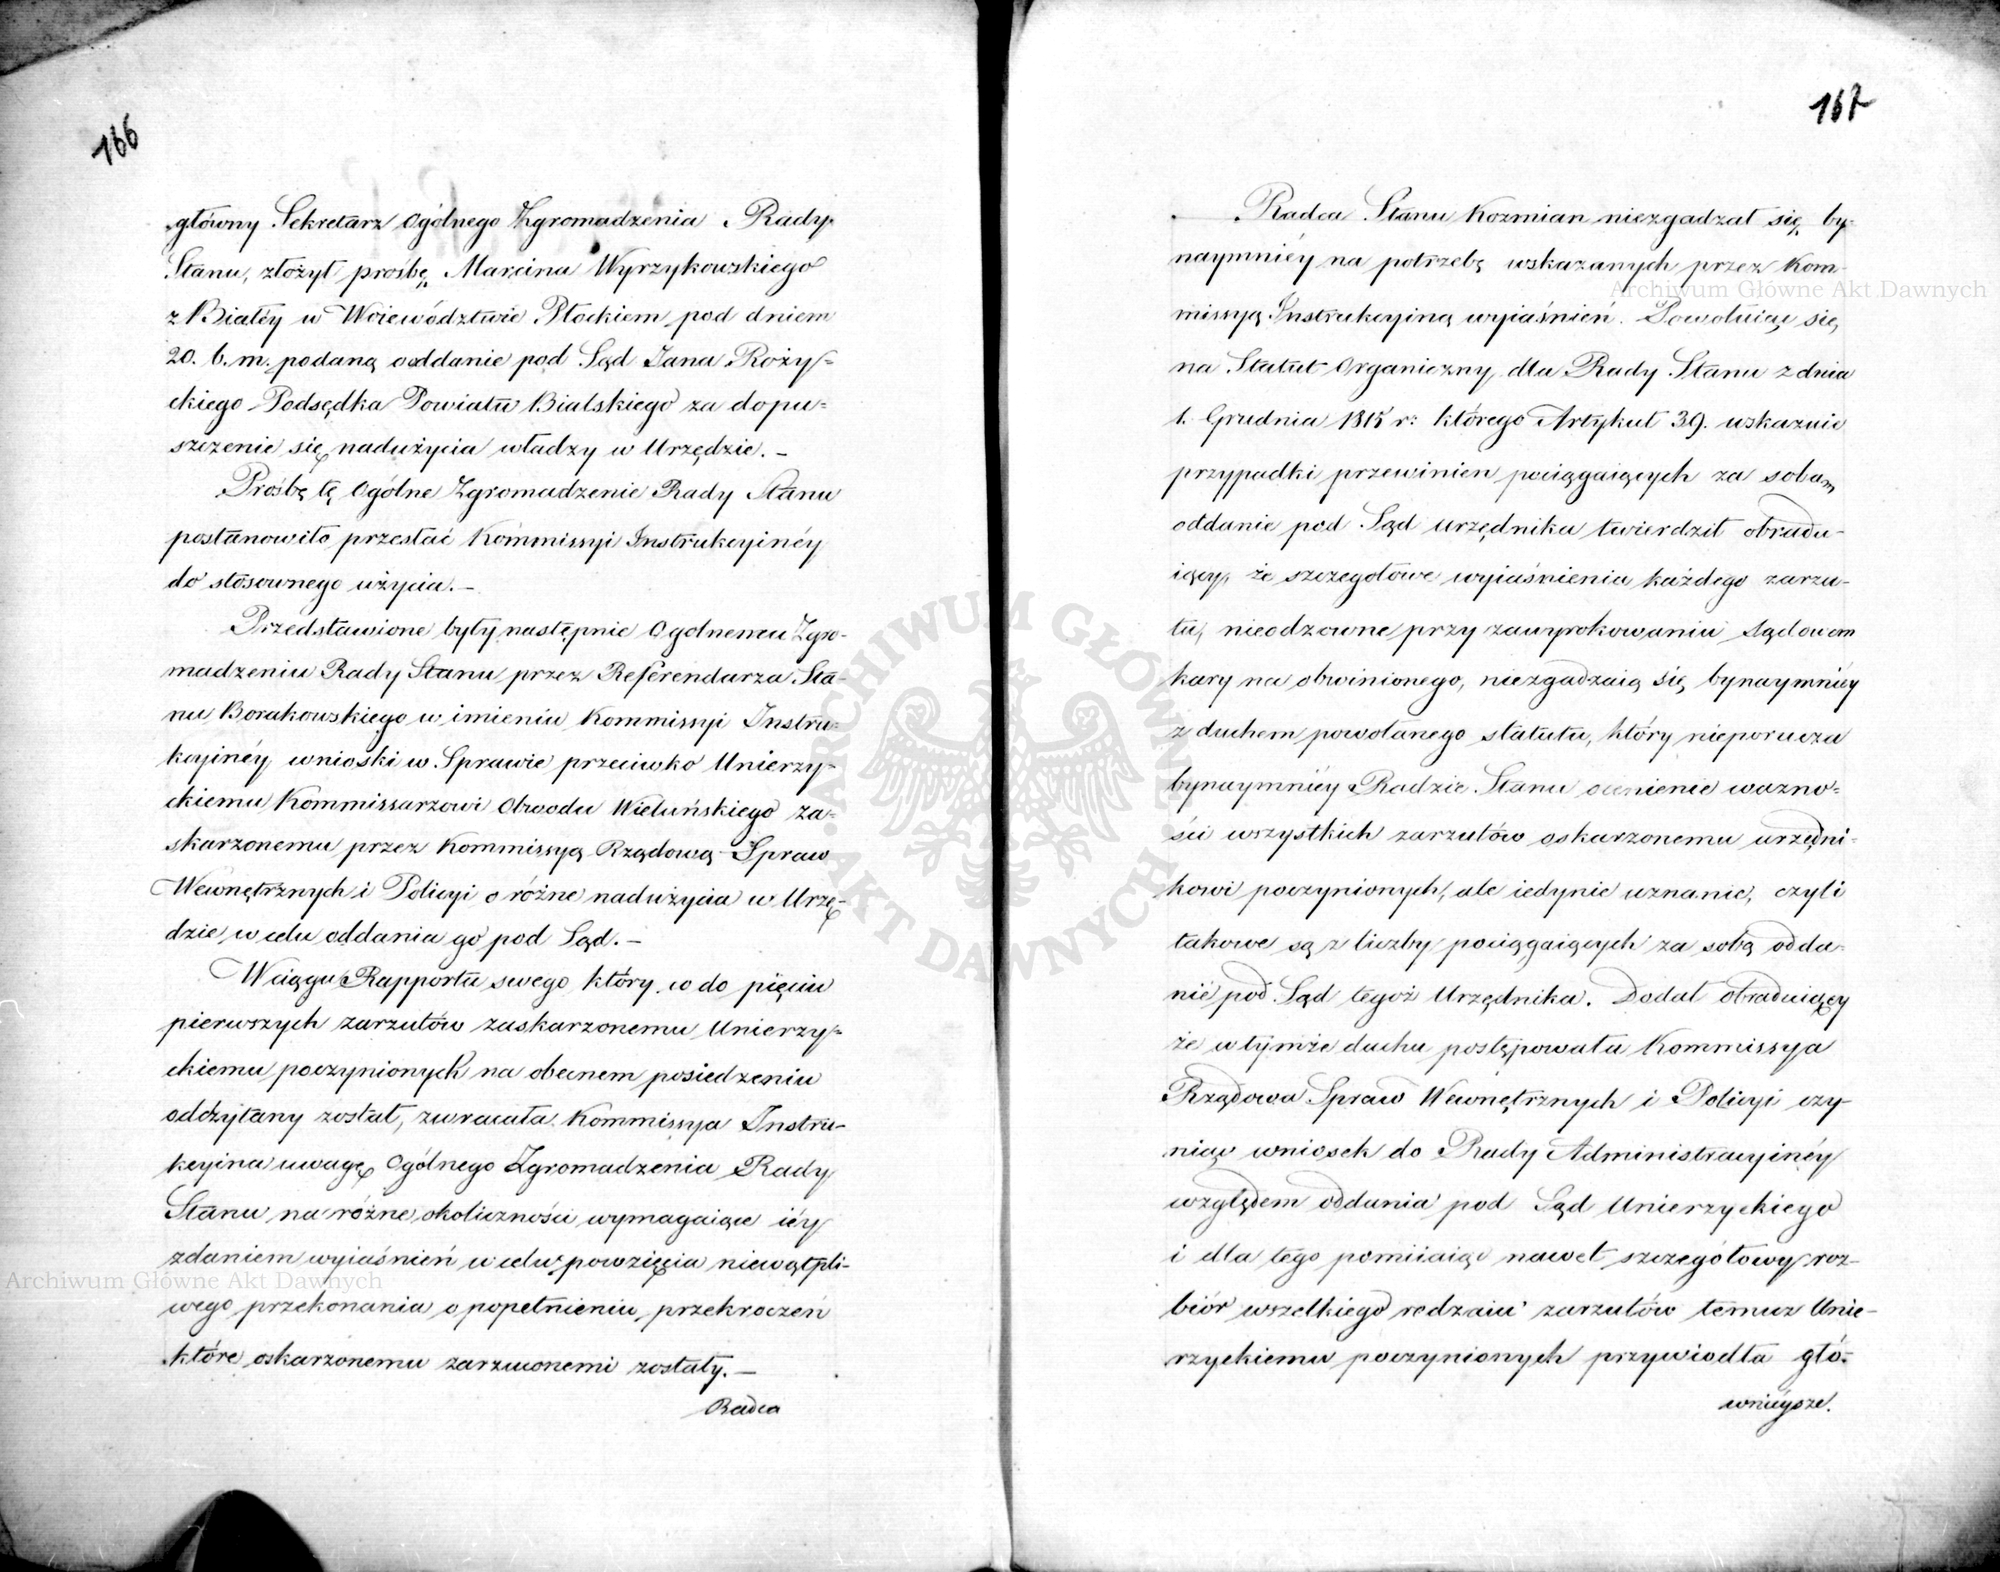 166
główny Sekretarz Ogólnego Zgromadzenia Rady
Stanu, złożył prośbę Marcina Wyrzykowskiego
z Białéy w Woiewództwie Płockiem pod dniem
20. b. m. podaną o oddanie pod Sąd Jana Roży-
ckiego Podsędka Powiatu Bialskiego za dopu-
szczenie się nadużycia władzy w Urzędzie. –
Prośbę tę Ogólne Zgromadzenie Rady Stanu
postanowiło przesłać Kommissyi Instrukcyinéy
do stosownego użycia. –
Przedstawione były następnie Ogolnemu Zgro-
madzeniu Rady Stanu przez Referendarza Sta-
nu Borakowskiego w imieniu Kommissyi Instru-
kcyinéy wnioski w Sprawie przeciwko Unierzy-
ckiemu Kommissarzowi Obwodu Wieluńskiego za-
skarzonemu przez Kommissyą Rządową Spraw
Wewnętrznych i Policyi o różne nadużycia w Urzę-
dzie w celu oddania go pod Sąd. –
W ciągu Rapportu swego który co do pięciu
pierwszych zarzutów zaskarzonemu Unierzy-
ckiemu poczynionych na obecnem posiedzeniu
odczytany został, zwracała Kommissya Instru-
kcyina uwagę Ogólnego Zgromadzenia Rady
Stanu na różne okoliczności wymagaiące iéy
zdaniem wyiaśnień w celu powzięcia niewątpli-
wego przekonania o popełnieniu przekroczeń
które oskarzonemu zarzuconemi zostały. –
Radca
167
Radca Stanu Kozmian niezgadzał się by-
naymniéy na potrzebę wskazanych przez Kom-
missyą Instrukcyiną wyiaśnień. Powołuiąc się
na Statut Organiczny dla Rady Stanu z dnia
1. Grudnia 1815 r: którego Artykuł 39. wskazuie
przypadki przewinien pociągaiących za sobą
oddanie pod Sąd urzędnika twierdził obradu-
iący, że szczegołowe wyiaśnienia każdego zarzu-
tu, nieodzowne przy zawyrokowaniu Sądowem
kary na obwinionego, niezgadzaią się bynaymniéy
z duchem powołanego statutu, który nieporucza
bynaymniéy Radzie Stanu ocenienie wazno-
ści wszystkich zarzutów oskarzonemu urzędni-
kowi poczynionych, ale iedynie uznanie, czyli
takowe są z liczby pociągaiących za sobą odda-
nie pod Sąd tegoż Urzędnika. Dodał obraduiący
że w tymże duchu postępowała Kommissya
Rządowa Spraw Wewnętrznych i Policyi czy-
niąc wniosek do Rady Administracyinéy
względem oddania pod Sąd Unierzyckiego
i dla tego pomiiaiąc nawet szczegółowy roz-
biór wszelkiego rodzaiu zarzutów temuz Unie-
rzyckiemu poczynionych przywiodła głó-
wnieysze.
Archiwum Główne Akt Dawnych
Archiwum Główne Akt Dawnych
ARCHIWUM GŁÓWNE AKT DAWNYCH